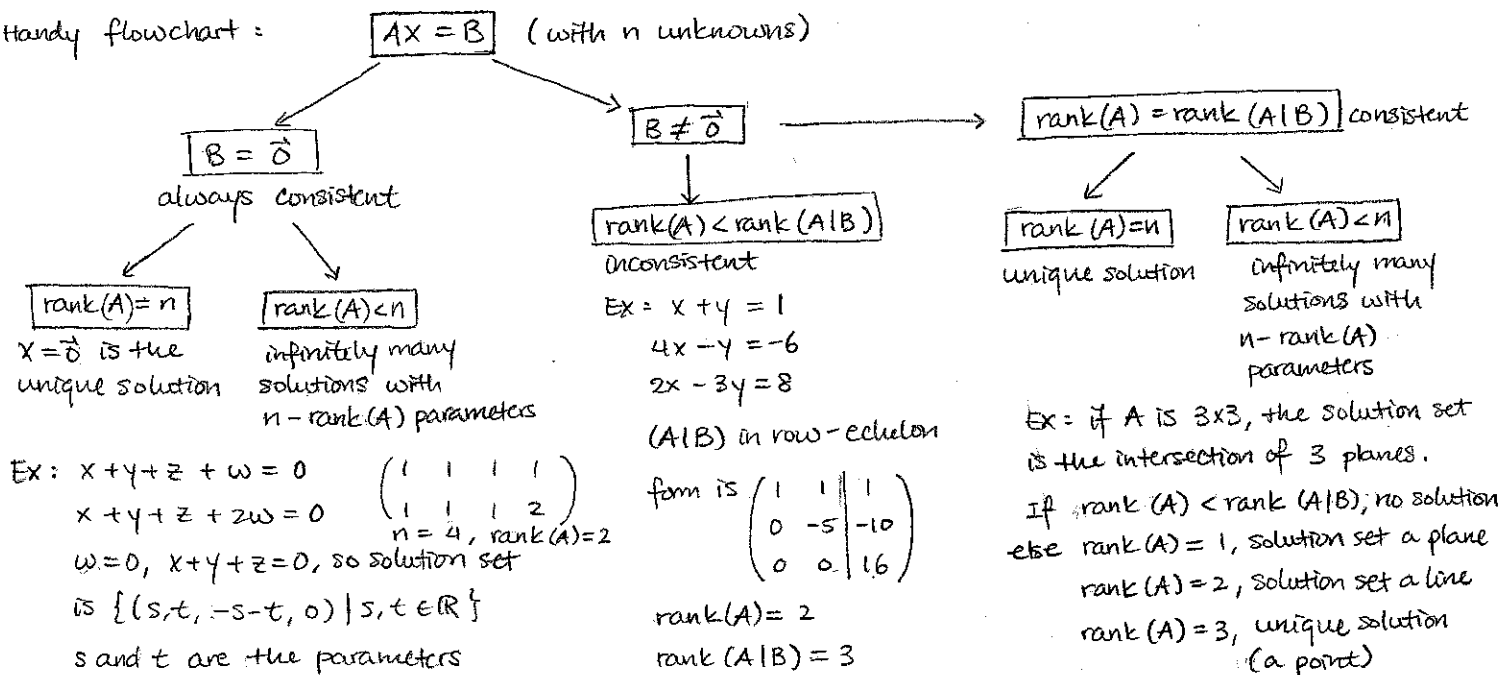 Handy flowchart: AX = B (with n unknowns)
B = 0⃗
always consistent
rank(A) = n
X = 0⃗ is the
unique solution
rank(A) < n
infinitely many
solutions with
n - rank(A) parameters
Ex: x + y + z + w = 0
x + y + z + 2w = 0
( 1 1 1 1
1 1 1 2 )
n = 4, rank(A) = 2
w = 0, x + y + z = 0, so solution set
is {(s, t, -s-t, 0) | s, t ∈ ℝ}
s and t are the parameters
B ≠ 0⃗
rank(A) < rank(A|B)
inconsistent
Ex: x + y = 1
4x - y = -6
2x - 3y = 8
(A|B) in row-echelon
form is
( 1 1 | 1
0 -5 | -10
0 0 | 16 )
rank(A) = 2
rank(A|B) = 3
rank(A) = rank(A|B) consistent
rank(A) = n
unique solution
rank(A) < n
infinitely many
solutions with
n - rank(A)
parameters
Ex: if A is 3x3, the solution set
is the intersection of 3 planes.
If rank(A) < rank(A|B), no solution
else rank(A) = 1, solution set a plane
rank(A) = 2, solution set a line
rank(A) = 3, unique solution
(a point)